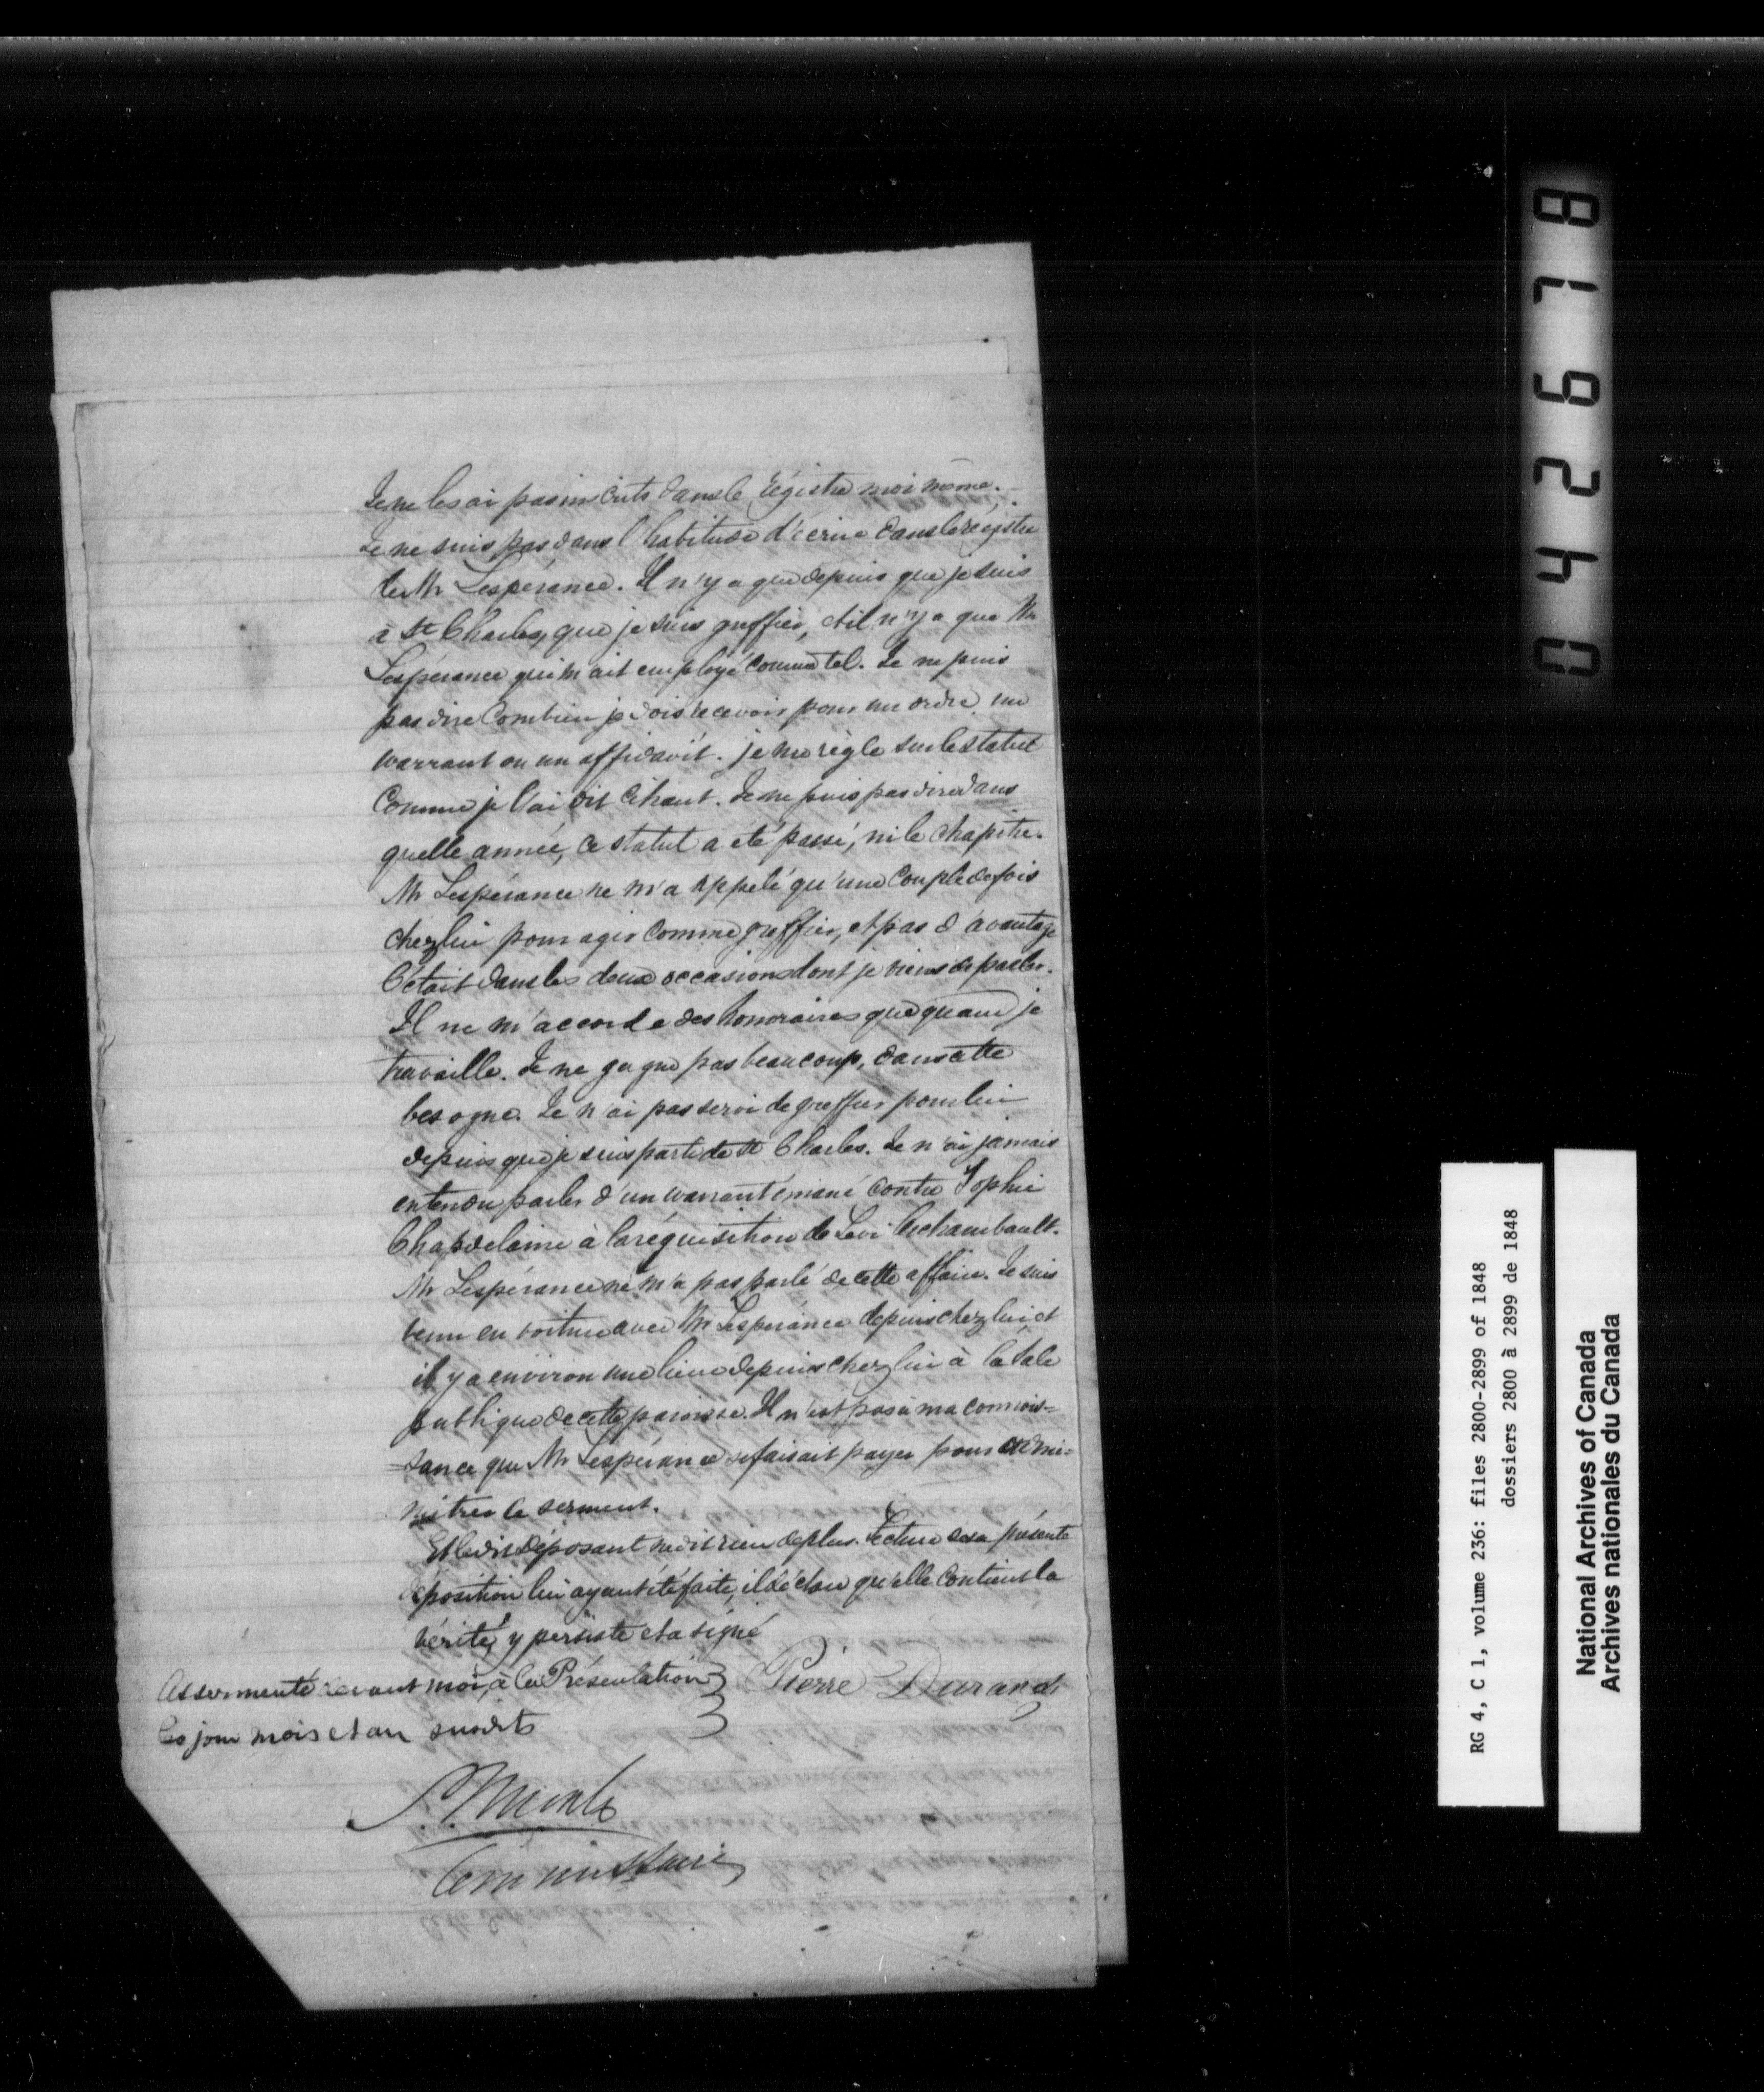 Je ne les ai pas inscrits dans le régistre moi même.
Je ne suis pas dans l'habitude d'écrire dans le régistre
de Mr Lespérance. Il n'y a que depuis que je suis
à St Charles, que je suis greffier, et il n'y a que Mr
Lespérance qui m'ait employé comme tel. Je ne puis
pas dire combien je dois recevoir pour un ordre, un
warrant ou un affidavit. je me règle sur le statut
comme je l'ai dit ci haut. Je ne puis pas dire dans
quelle année, ce statut a été passé, ni le chapitre.
Mr Lespérance ne m'a appelé qu'une couple de fois
chez lui pour agir comme greffier, et pas d'avantage
C'était dans les deux occasions dont je viens de parler.
Il ne m'accorde des honoraires que quand je
travaille. Je ne gagne pas beaucoup, dans cette
besogne. Je n'ai pas servi de greffier pour lui
depuis que je suis parti de St Charles. Je n'ai jamais
entendu parler d'un warrant émané contre Sophie
Chapdelaine à la réquisition de Levi Archambault.
Mr Lespérance ne m'a pas parlé de cette affaire. Je suis
venu en voiture avec Mr Lespérance depuis chez lui, et
il y a environ une lieue depuis chez lui à la sale
publique de cette paroisse. Il n'est pas à ma connois=
=sance que Mr Lespérance se faisait payer pour admi=
nistrer le serment.
Et le dit Déposant ne dit rien de plus. Lecture de sa présente
déposition lui ayant été faite, il déclare qu'elle contient la
vérité, y persiste et a signé
Assermenté devant moi, à la Présentation } Pierre Durand
les jour mois et an susdits
Commissaire
042678
RG 4, C 1, volume 236: files 2800-2899 of 1848
dossiers 2800 à 2899 de 1848
National Archives of Canada
Archives nationales du Canada